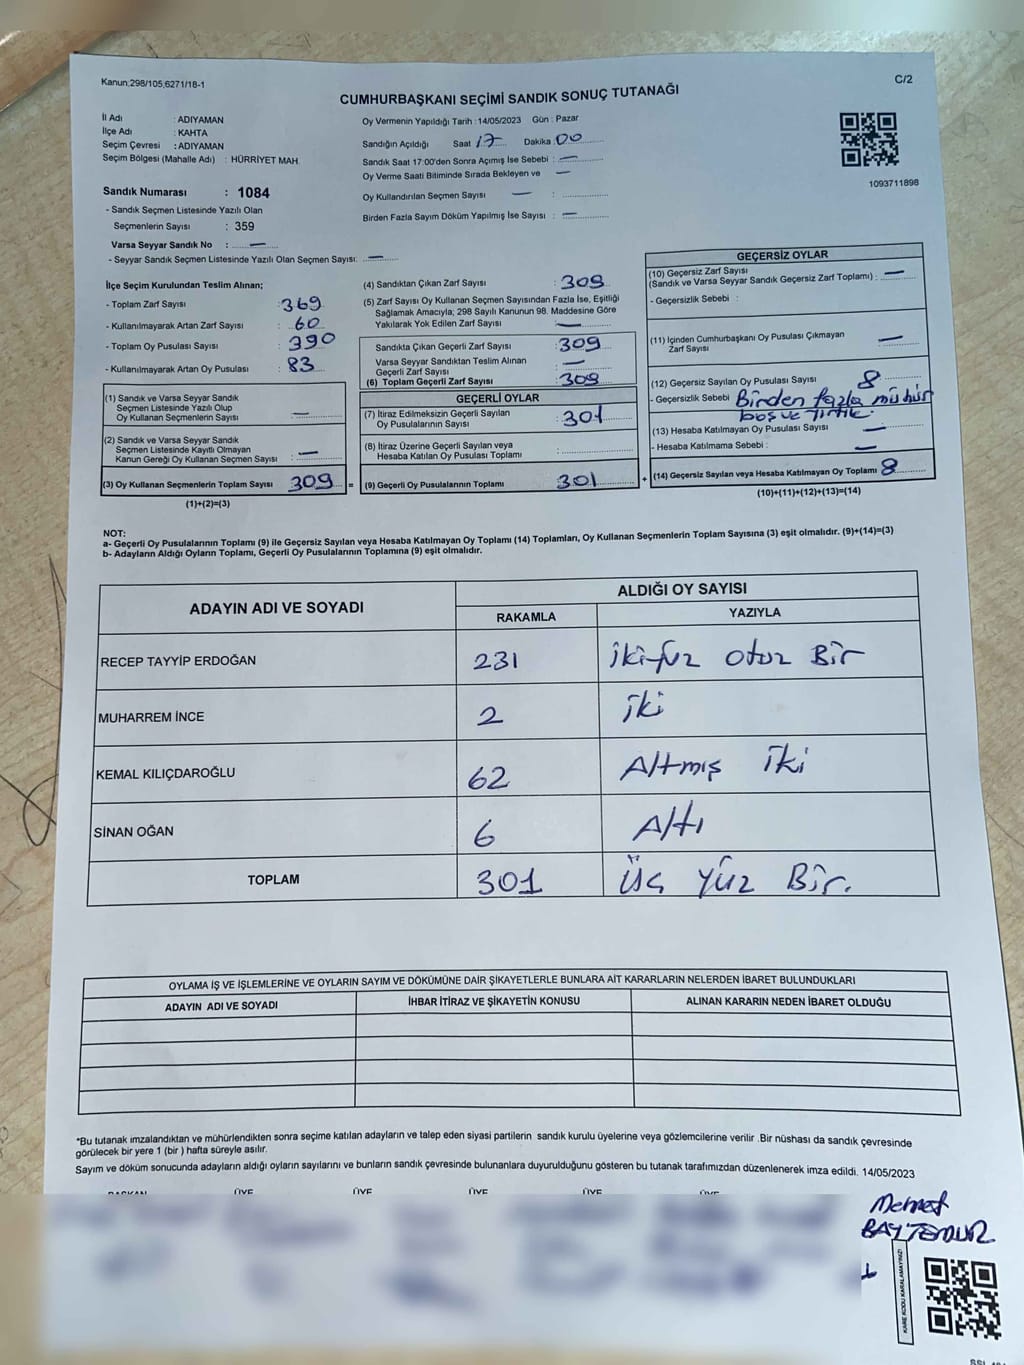 Kanun;298/105,6271/18-1
C/2
CUMHURBAŞKANI SEÇİMİ SANDIK SONUÇ TUTANAĞI
İl Adı : ADIYAMAN
İlçe Adı : KAHTA
Seçim Çevresi : ADIYAMAN
Seçim Bölgesi (Mahalle Adı) : HÜRRİYET MAH.
Sandık Numarası : 1084
- Sandık Seçmen Listesinde Yazılı Olan
Seçmenlerin Sayısı : 359
Varsa Seyyar Sandık No : —
- Seyyar Sandık Seçmen Listesinde Yazılı Olan Seçmen Sayısı: —
Oy Vermenin Yapıldığı Tarih : 14/05/2023 Gün : Pazar
Sandığın Açıldığı Saat 17 Dakika 00
Sandık Saat 17:00'den Sonra Açımış İse Sebebi : —
Oy Verme Saati Bitiminde Sırada Bekleyen ve —
Oy Kullandırılan Seçmen Sayısı —
Birden Fazla Sayım Döküm Yapılmış İse Sayısı : —
1093711898
İlçe Seçim Kurulundan Teslim Alınan;
- Toplam Zarf Sayısı : 369
- Kullanılmayarak Artan Zarf Sayısı : 60
- Toplam Oy Pusulası Sayısı : 390
- Kullanılmayarak Artan Oy Pusulası : 83
(1) Sandık ve Varsa Seyyar Sandık
Seçmen Listesinde Yazılı Olup
Oy Kullanan Seçmenlerin Sayısı : —
(2) Sandık ve Varsa Seyyar Sandık
Seçmen Listesinde Kayıtlı Olmayan
Kanun Gereği Oy Kullanan Seçmen Sayısı : —
(3) Oy Kullanan Seçmenlerin Toplam Sayısı 309 =
(1)+(2)=(3)
(4) Sandıktan Çıkan Zarf Sayısı : 309
(5) Zarf Sayısı Oy Kullanan Seçmen Sayısından Fazla İse, Eşitliği
Sağlamak Amacıyla; 298 Sayılı Kanunun 98. Maddesine Göre
Yakılarak Yok Edilen Zarf Sayısı : —
Sandıkta Çıkan Geçerli Zarf Sayısı : 309
Varsa Seyyar Sandıktan Teslim Alınan
Geçerli Zarf Sayısı : —
(6) Toplam Geçerli Zarf Sayısı : 309
GEÇERLİ OYLAR
(7) İtiraz Edilmeksizin Geçerli Sayılan
Oy Pusulalarının Sayısı : 301
(8) İtiraz Üzerine Geçerli Sayılan veya
Hesaba Katılan Oy Pusulası Toplamı :
(9) Geçerli Oy Pusulalarının Toplamı : 301 +
GEÇERSİZ OYLAR
(10) Geçersiz Zarf Sayısı
(Sandık ve Varsa Seyyar Sandık Geçersiz Zarf Toplamı) : —
- Geçersizlik Sebebi :
(11) İçinden Cumhurbaşkanı Oy Pusulası Çıkmayan
Zarf Sayısı : —
(12) Geçersiz Sayılan Oy Pusulası Sayısı : 8
- Geçersizlik Sebebi Birden fazla mühür
boş ve yırtık.
(13) Hesaba Katılmayan Oy Pusulası Sayısı —
- Hesaba Katılmama Sebebi : —
(14) Geçersiz Sayılan veya Hesaba Katılmayan Oy Toplamı 8
(10)+(11)+(12)+(13)=(14)
NOT:
a- Geçerli Oy Pusulalarının Toplamı (9) ile Geçersiz Sayılan veya Hesaba Katılmayan Oy Toplamı (14) Toplamları, Oy Kullanan Seçmenlerin Toplam Sayısına (3) eşit olmalıdır. (9)+(14)=(3)
b- Adayların Aldığı Oyların Toplamı, Geçerli Oy Pusulalarının Toplamına (9) eşit olmalıdır.
ADAYIN ADI VE SOYADI
ALDIĞI OY SAYISI
RAKAMLA YAZIYLA
RECEP TAYYİP ERDOĞAN 231 ikiyüz otuz Bir
MUHARREM İNCE 2 iki
KEMAL KILIÇDAROĞLU 62 Altmış iki
SİNAN OĞAN 6 Altı
TOPLAM 301 Üç yüz Bir.
OYLAMA İŞ VE İŞLEMLERİNE VE OYLARIN SAYIM VE DÖKÜMÜNE DAİR ŞİKAYETLERLE BUNLARA AİT KARARLARIN NELERDEN İBARET BULUNDUKLARI
ADAYIN ADI VE SOYADI İHBAR İTİRAZ VE ŞİKAYETİN KONUSU ALINAN KARARIN NEDEN İBARET OLDUĞU
*Bu tutanak imzalandıktan ve mühürlendikten sonra seçime katılan adayların ve talep eden siyasi partilerin sandık kurulu üyelerine veya gözlemcilerine verilir .Bir nüshası da sandık çevresinde
görülecek bir yere 1 (bir ) hafta süreyle asılır.
Sayım ve döküm sonucunda adayların aldığı oyların sayılarını ve bunların sandık çevresinde bulunanlara duyurulduğunu gösteren bu tutanak tarafımızdan düzenlenerek imza edildi. 14/05/2023
BAŞKAN ÜYE ÜYE ÜYE ÜYE ÜYE
Mehmet
BAYTEMUR
KARE KODU KARALAMAYINIZ!